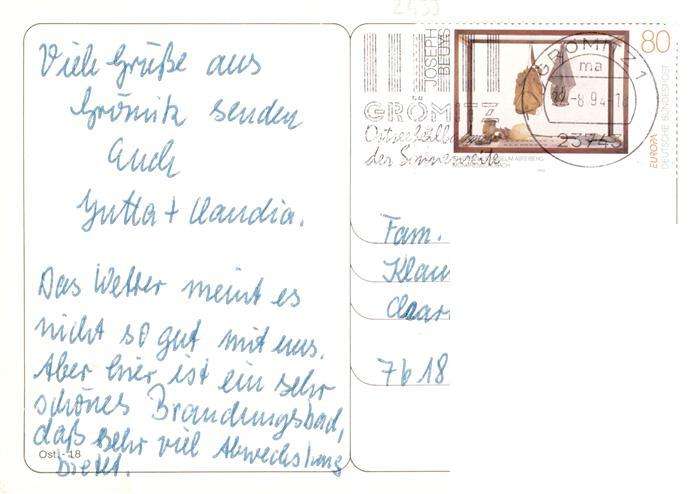 Viele Grüße aus
Grömitz senden
Euch
Jutta + Claudia.
Das Wetter meint es
nicht so gut mit uns.
Aber hier ist ein sehr
schönes Brandungsbad,
daß sehr viel Abwechslung
bietet.
Ostj - 18
80
JOSEPH
BEUYS
EUROPA
DEUTSCHE BUNDESPOST
GRÖMITZ 1
ma
-8.94-18
23743
GRÖMITZ
Ostseeheilbad
der Sonnenseite
Fam.
Klau
7618